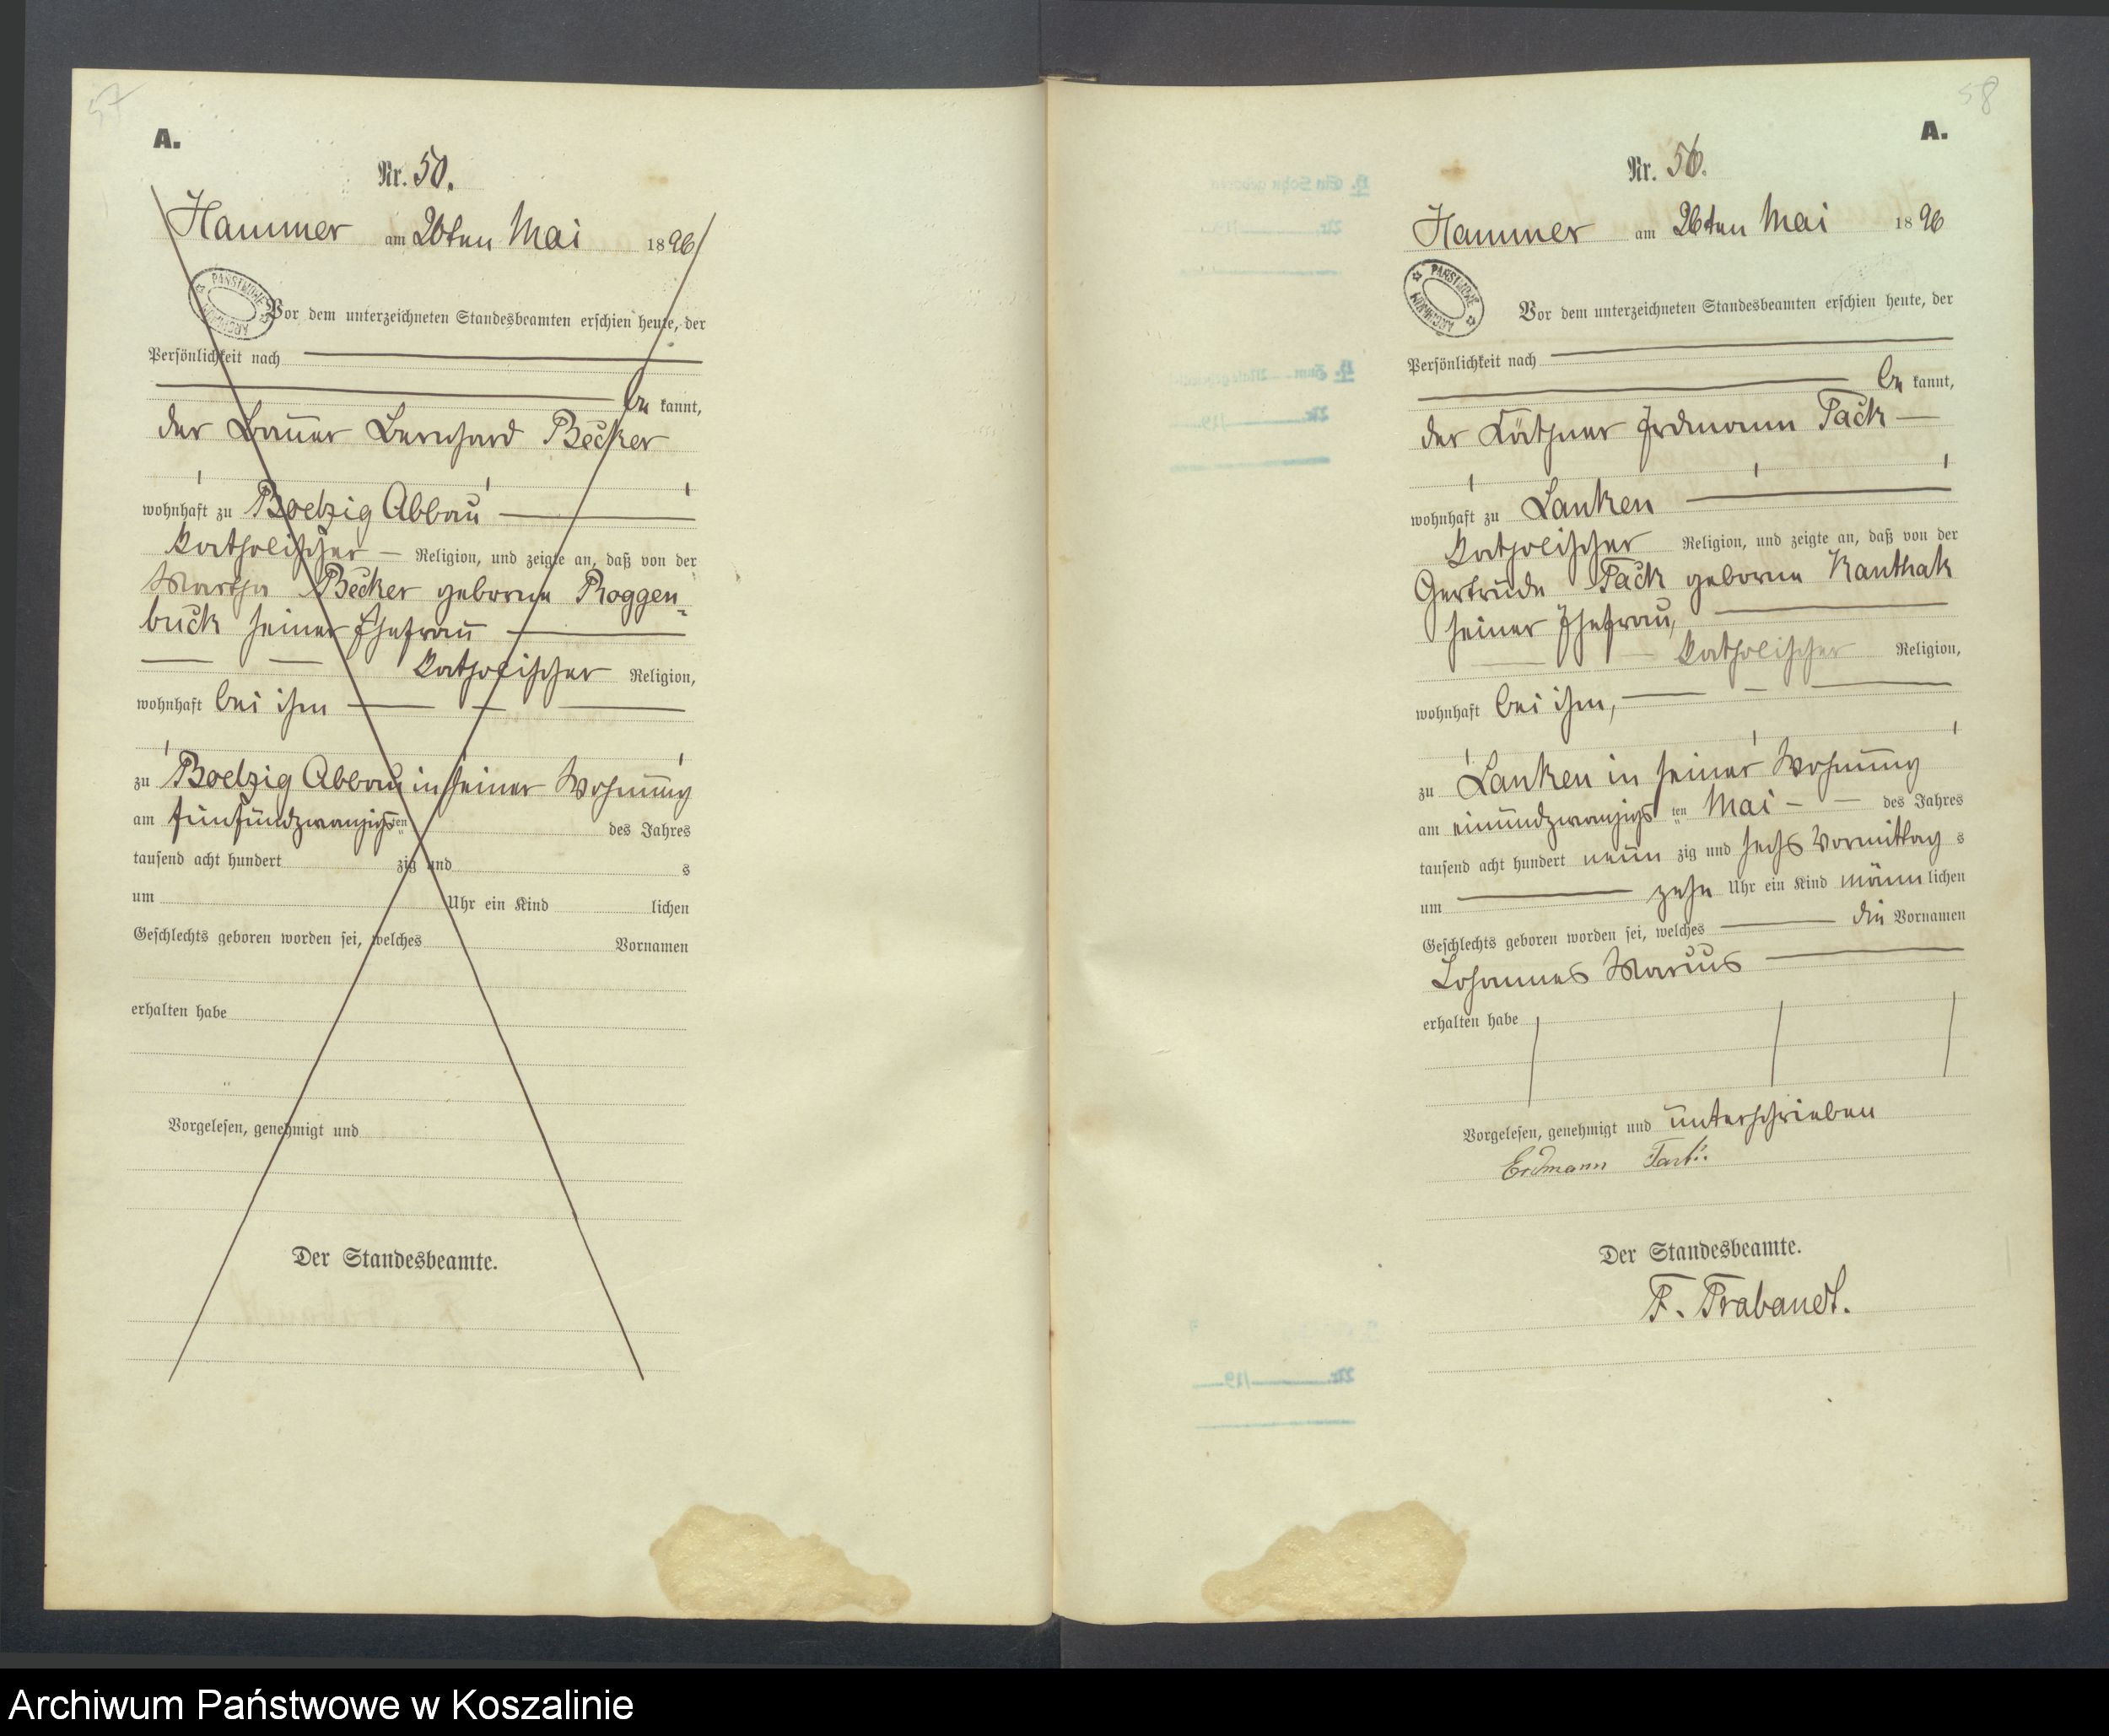 57
A.
Nr. 50.
Hammer am 26ten Mai 1896
PAŃSTWOWE ARCHIWUM
Vor dem unterzeichneten Standesbeamten erschien heute, der
Persönlichkeit nach
be kannt,
der Bauer Bernhard Becker
wohnhaft zu Boelzig Abbau
katholischer Religion, und zeigte an, daß von der
Martha Becker geborne Roggen-
buck seiner Ehefrau
katholischer Religion,
wohnhaft bei ihm
zu Boelzig Abbau in seiner Wohnung
am fünfundzwanzigsten des Jahres
tausend acht hundert zig und s
um Uhr ein Kind lichen
Geschlechts geboren worden sei, welches Vornamen
erhalten habe
Vorgelesen, genehmigt und
Der Standesbeamte.
58
A.
Nr. 50.
Hammer am 26ten Mai 1896
PAŃSTWOWE ARCHIWUM
Vor dem unterzeichneten Standesbeamten erschien heute, der
Persönlichkeit nach
be kannt,
der Käthner Erdmann Tack
wohnhaft zu Lanken
katholischer Religion, und zeigte an, daß von der
Gertrude Tack geborne Kanthak
seiner Ehefrau,
katholischer Religion,
wohnhaft bei ihm,
zu Lanken in seiner Wohnung
am einundzwanzigs ten Mai des Jahres
tausend acht hundert neun zig und sechs Vormittag s
um zehn Uhr ein Kind männ lichen
Geschlechts geboren worden sei, welches die Vornamen
Johannes Marius
erhalten habe
Vorgelesen, genehmigt und unterschrieben
Erdmann
Der Standesbeamte.
F. Trabandt.
Archiwum Państwowe w Koszalinie